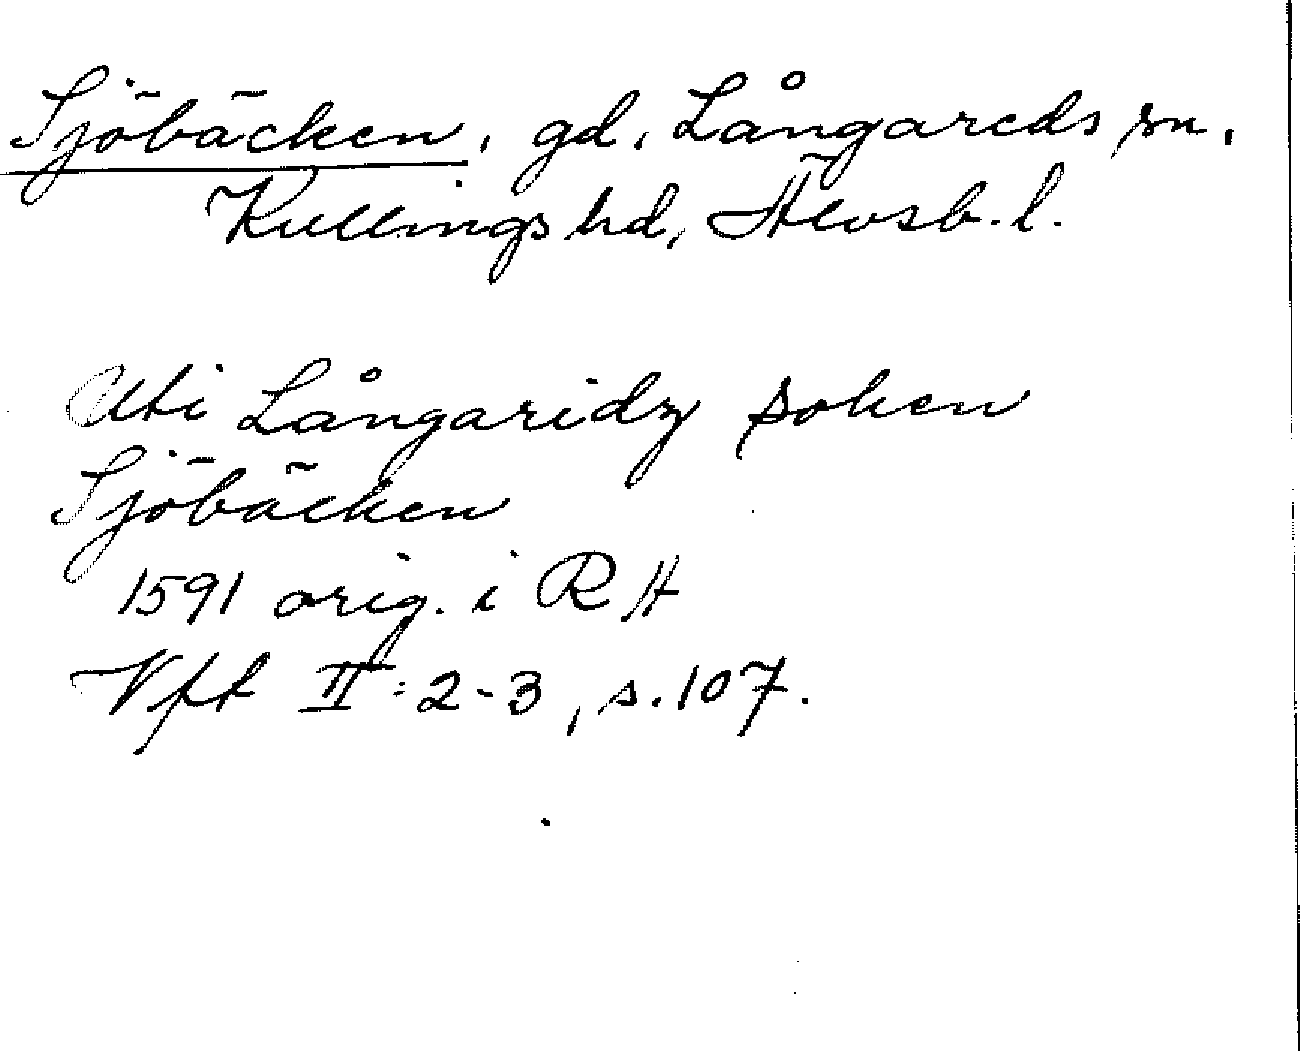 Sjöbäcken, gd, Långareds sn,
Kullings hd, Älvsb. l.
Uti Långaridz soken
Sjöbäcken
1591 orig. i RH
Vft II:2-3, s. 107.